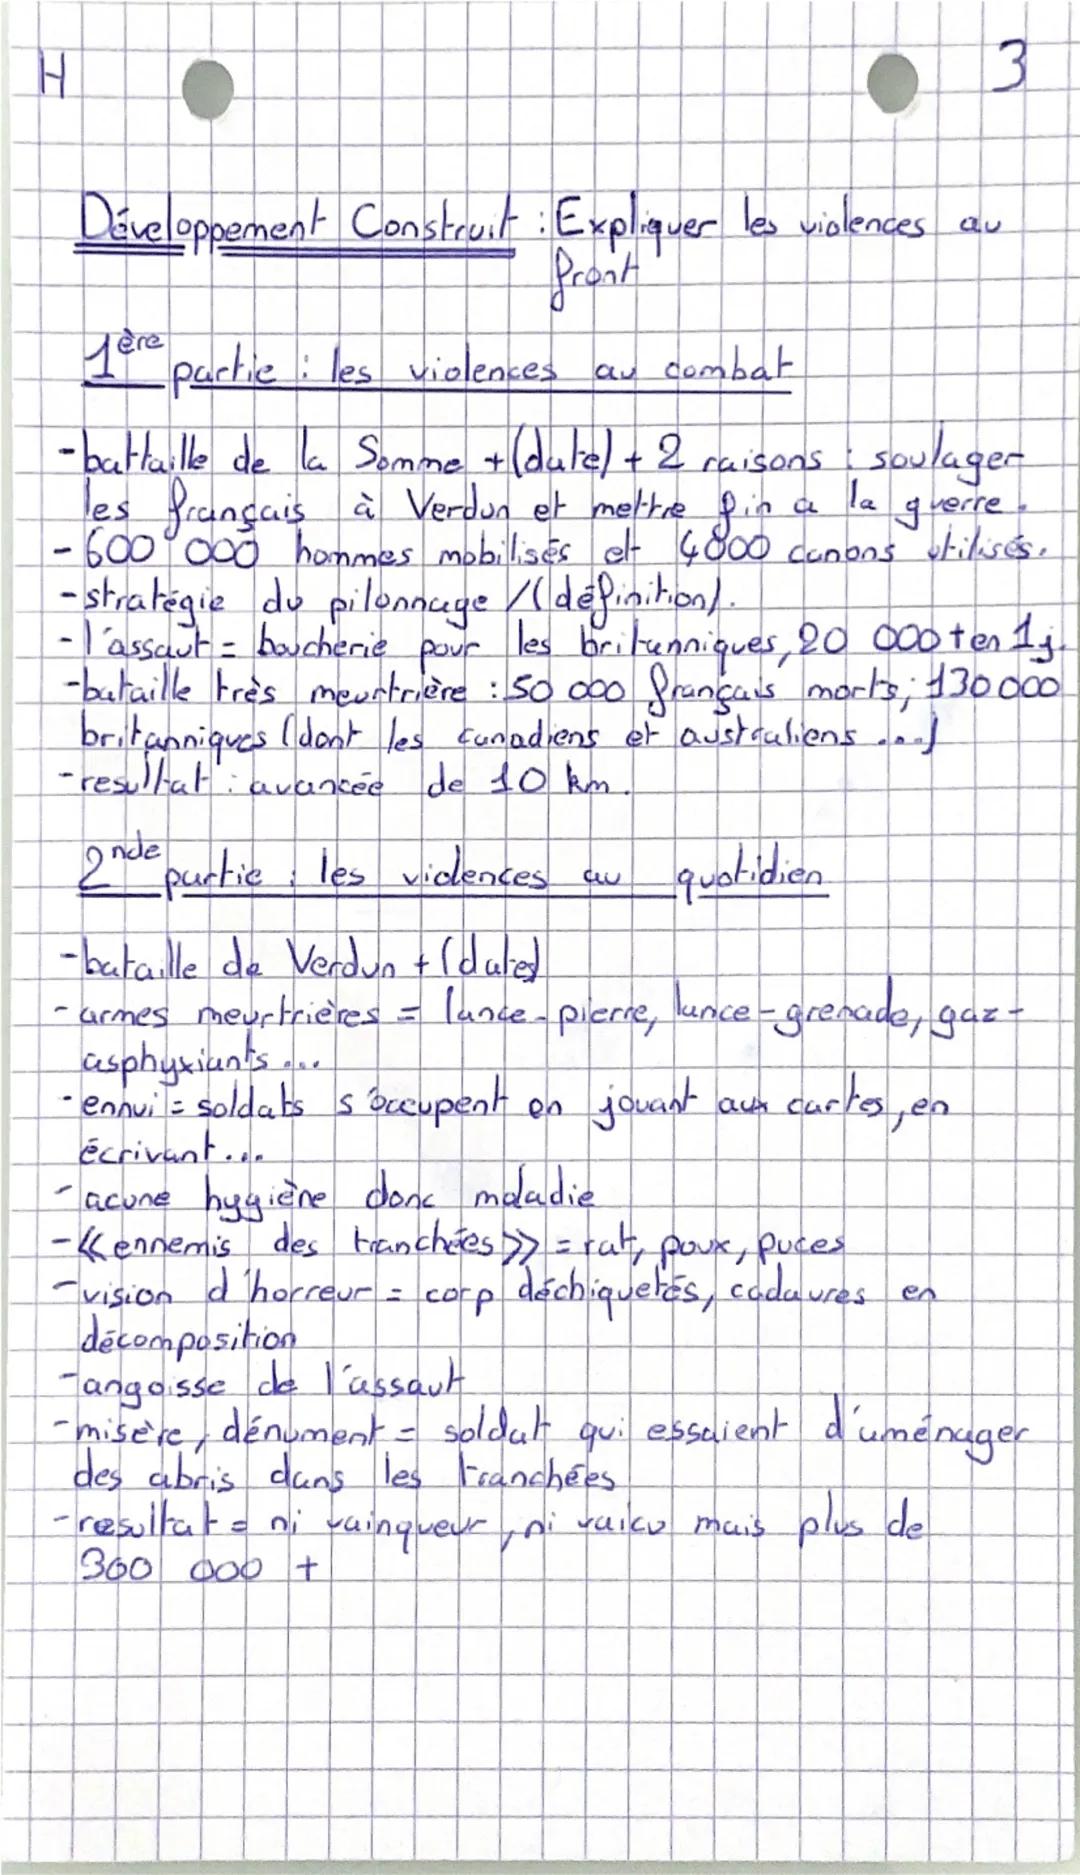 H
3
Développement Construit : Expliquer les violences au
front
1ère partie : les violences au combat
-battaille de la Somme +(date) + 2 raisons : soulager
les français à Verdun et mettre fin a la guerre.
- 600 000 hommes mobilisés et 4000 canons utilisés.
- stratégie du pilonnage /(définition).
- l'assaut = boucherie pour les britanniques, 20 000 † en 1j.
-bataille très meurtrière : 50 000 français morts ; 130 000
britanniques (dont les canadiens et australiens ...)
- resultat : avancée de 10 km.
2nde partie : les violences au quotidien
-bataille de Verdun + (dates)
- armes meurtrières = lance-pierre, lance-grenade, gaz-
asphyxiants ...
- ennui = soldats s'occupent en jouant aux cartes, en
écrivant ...
- acune hygiène donc maladie
- « ennemis des tranchées » = rat, poux, puces
- vision d'horreur = corp déchiquetés, cadavres en
décomposition
- angoisse de l'assaut
- misère, dénument = soldat qui essaient d'aménager
des abris dans les tranchées
- resultat = ni vainqueur, ni vaicu mais plus de
300 000 †